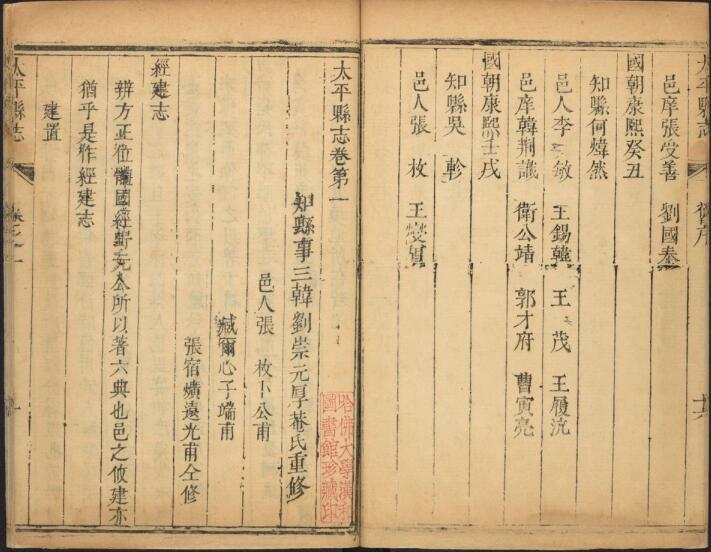 太平縣志
舊序
十六
邑庠張受善　劉國泰
國朝康熙癸丑
知縣何煒然
邑人李　敏　王錫韓　王　茂　王履沆
邑庠韓荆識　衛公靖　郭才府　曹寅亮
國朝康熙壬戌
知縣吳　軫
邑人張　枚　王燮
哈佛大學漢和
圖書館珍藏印
太平縣志卷第一
知縣事三韓劉崇元厚菴氏重修
邑人張　枚卜公甫
臧爾心子端甫
張宿爌遠光甫仝修
經建志
辨方正位體國經野元公所以著六典也邑之攸建亦
猶乎是作經建志
建置
太平縣志
卷之一
一